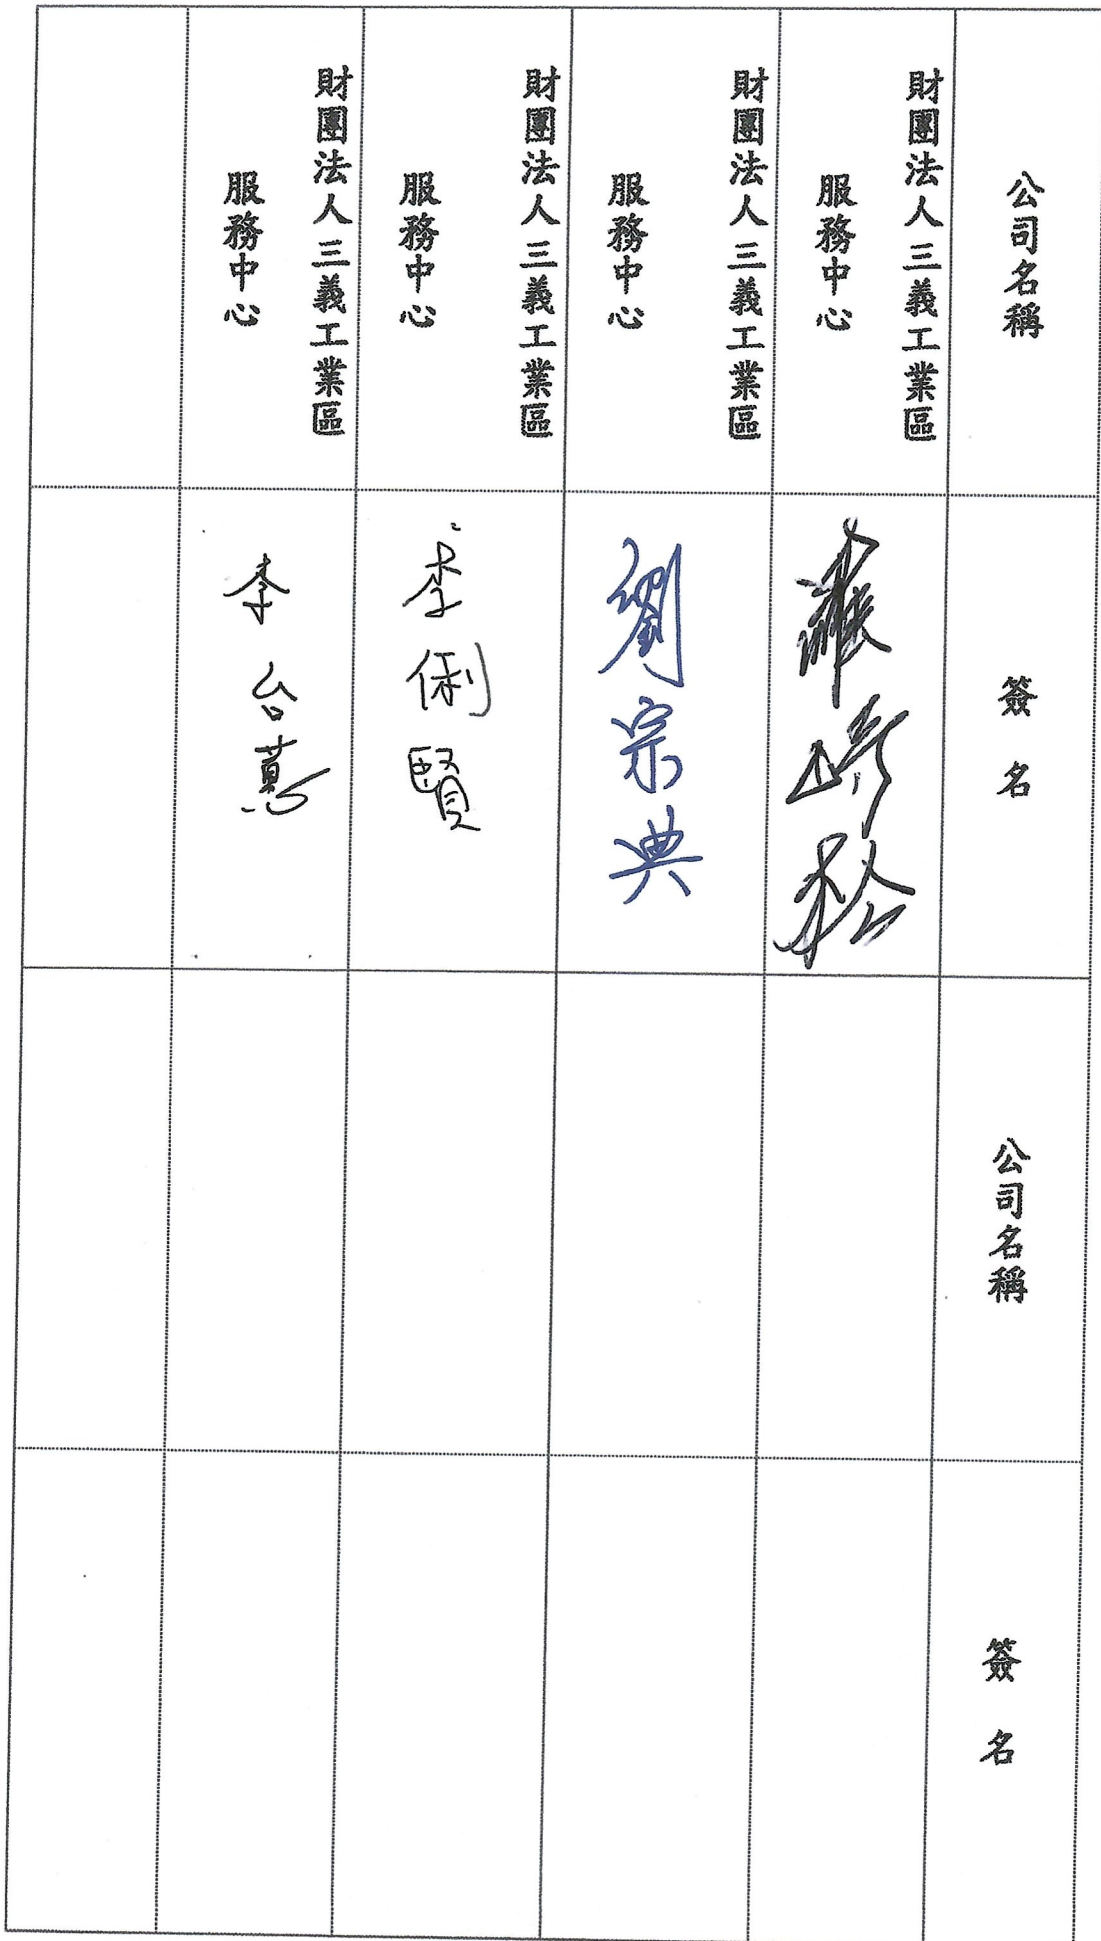 公司名稱
簽名
公司名稱
簽名
財團法人三義工業區
服務中心
財團法人三義工業區
服務中心
劉宗典
財團法人三義工業區
服務中心
李俐賢
財團法人三義工業區
服務中心
李台蕙